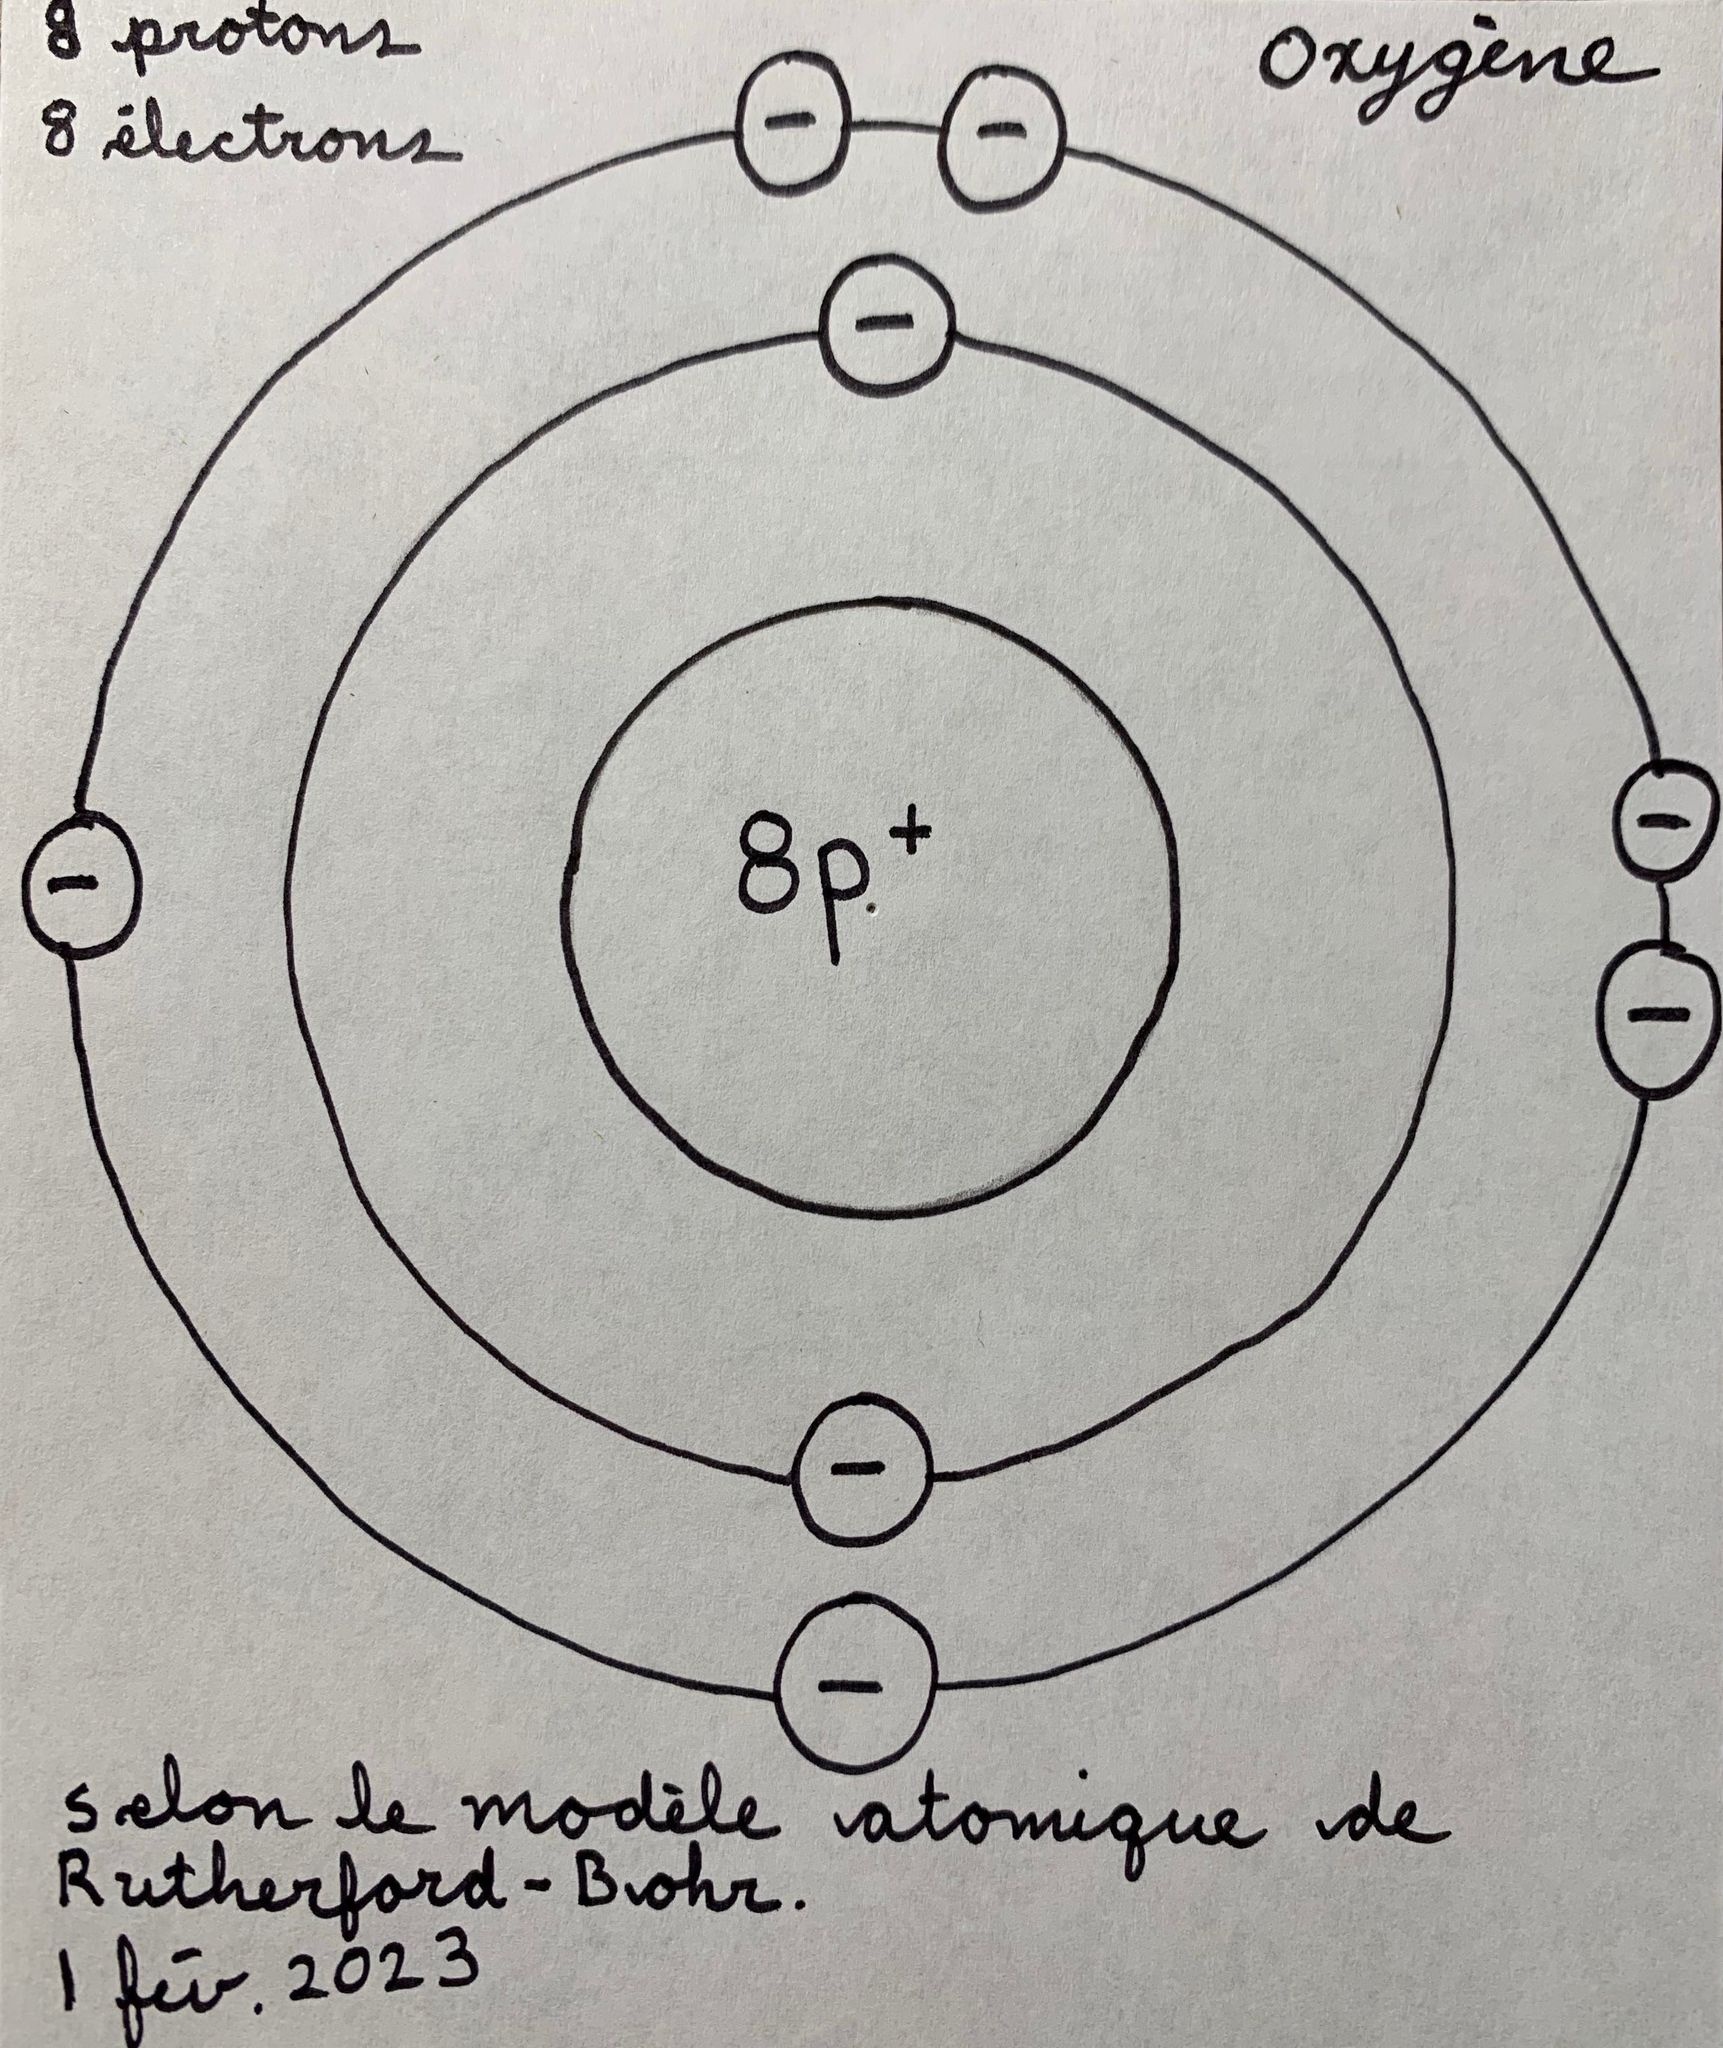 8 protons
8 électrons
Oxygène
−
−
−
−
8p.⁺
−
−
−
−
selon le modèle atomique de
Rutherford-Bohr.
1 fév. 2023